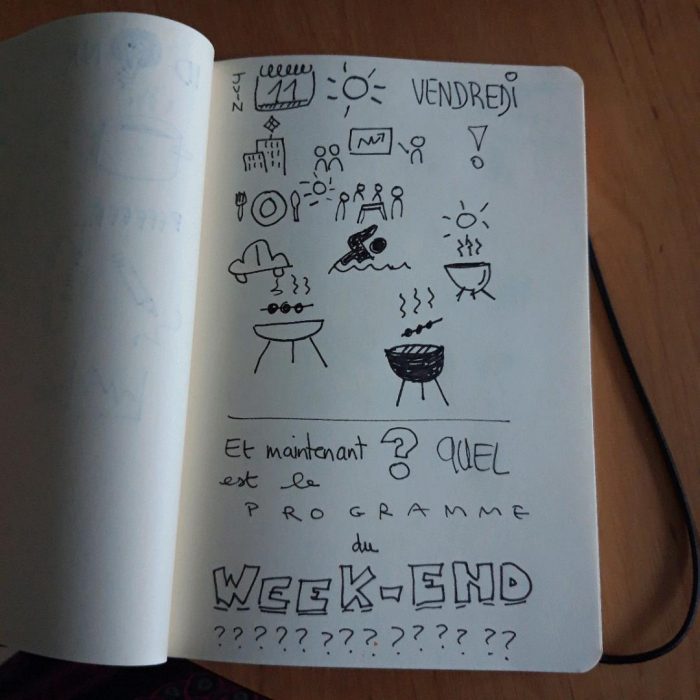 JUIN 11 VENDREDI
!
Et maintenant ? QUEL
est le
PROGRAMME
du
WEEK-END
?????? ???? ????? ??